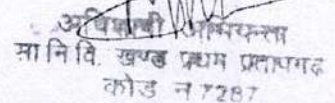 अधिशाषी अभियन्ता
सा नि वि. खण्ड प्रथम प्रतापगढ
कोड न 7287